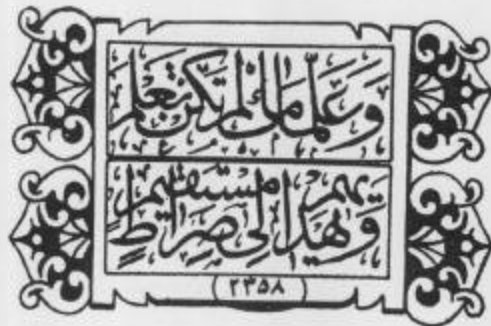 وَعَلَّمَكَ مَا لَمْ تَكُنْ تَعْلَمُ
وَيَهْدِيهِمْ إِلَى صِرَاطٍ مُسْتَقِيمٍ
۲۳۵۸